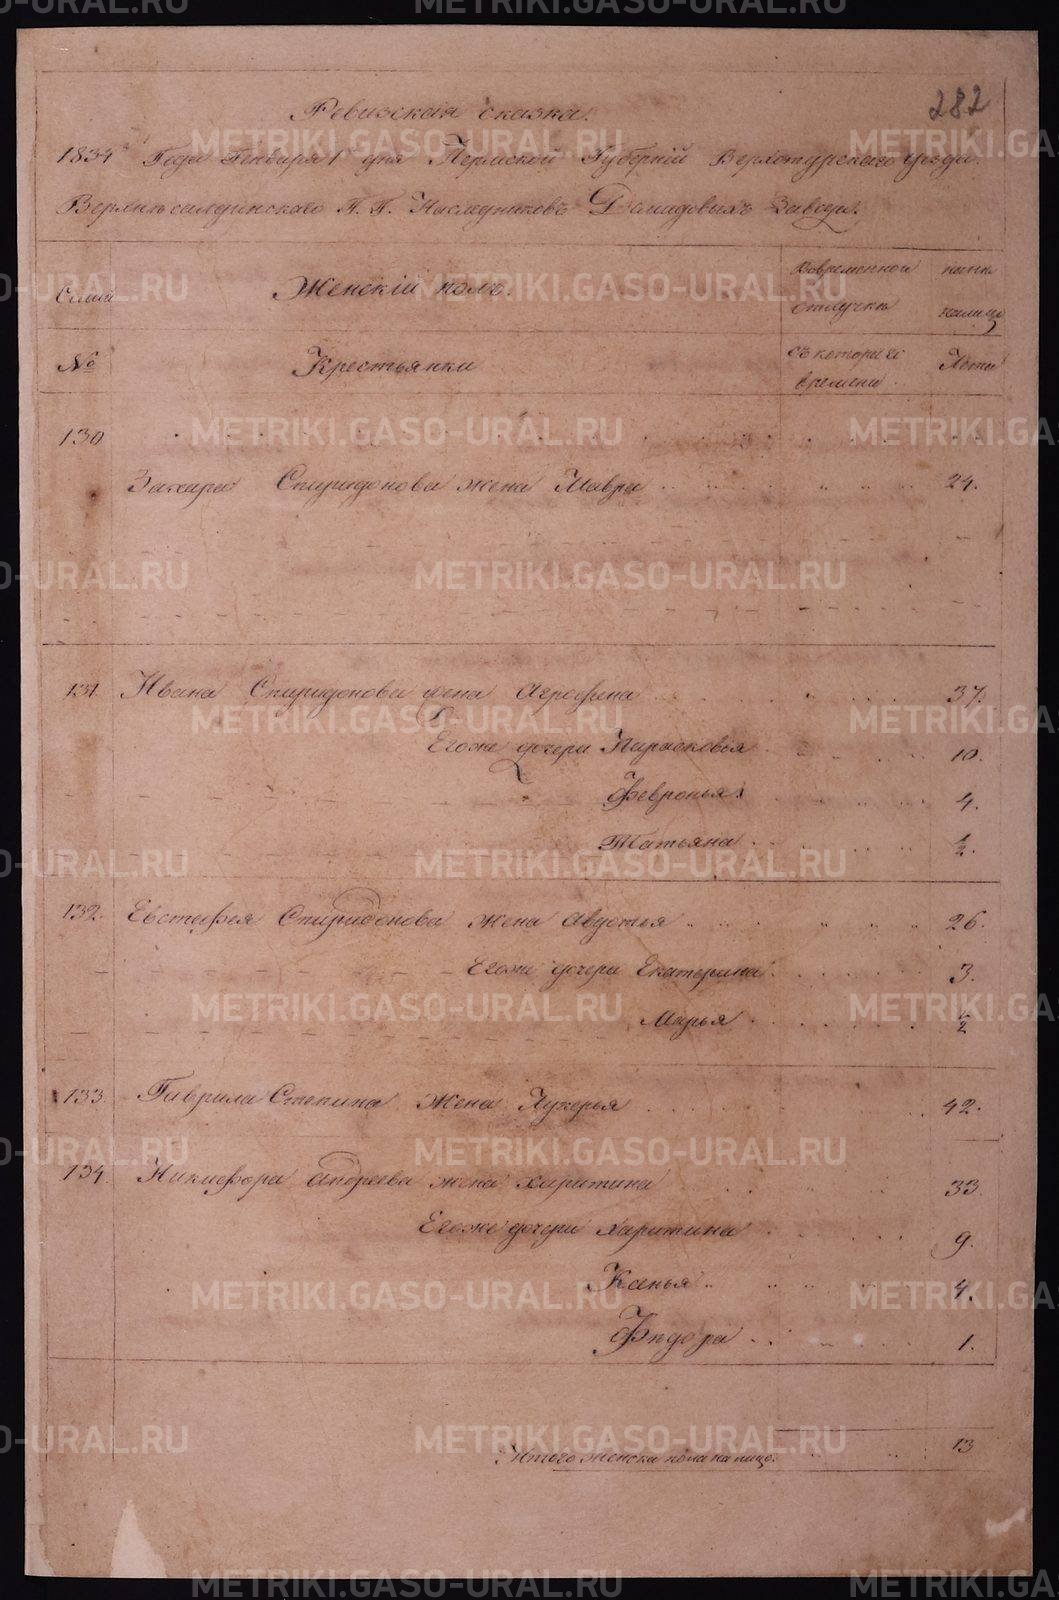 282
Ревизская сказка.
1834 Года Генваря 1 дня Пермской Губернiй Верхотурскаго уезда.
Верхнесалдинскаго Г.Г. Наследниковъ Демидовыхъ Завода.
Семьи
Женскiй полъ.
Вовременной отлучке
ныне налицо
№
Крестьянки
съ котораго времени
Лета
130
Захара Спиридонова жена Мавра 24.
131. Ивана Спиридонова жена Агрофена 37.
Егоже дочери Парасковья 10.
Февронья 4.
Татьяна 1/2.
132. Евстафея Спиридонова жена Авдотья 26.
Егоже дочери Екатерина 3.
Марья 1/2
133. Гаврила Степина жена Лукерья 42.
134. Никифора Андреева жена Харитина 33
Егоже дочери Харитина 9.
Ксенья 4.
Федора 1.
Итого женска пола на лицо 13
METRIKI.GASO-URAL.RU